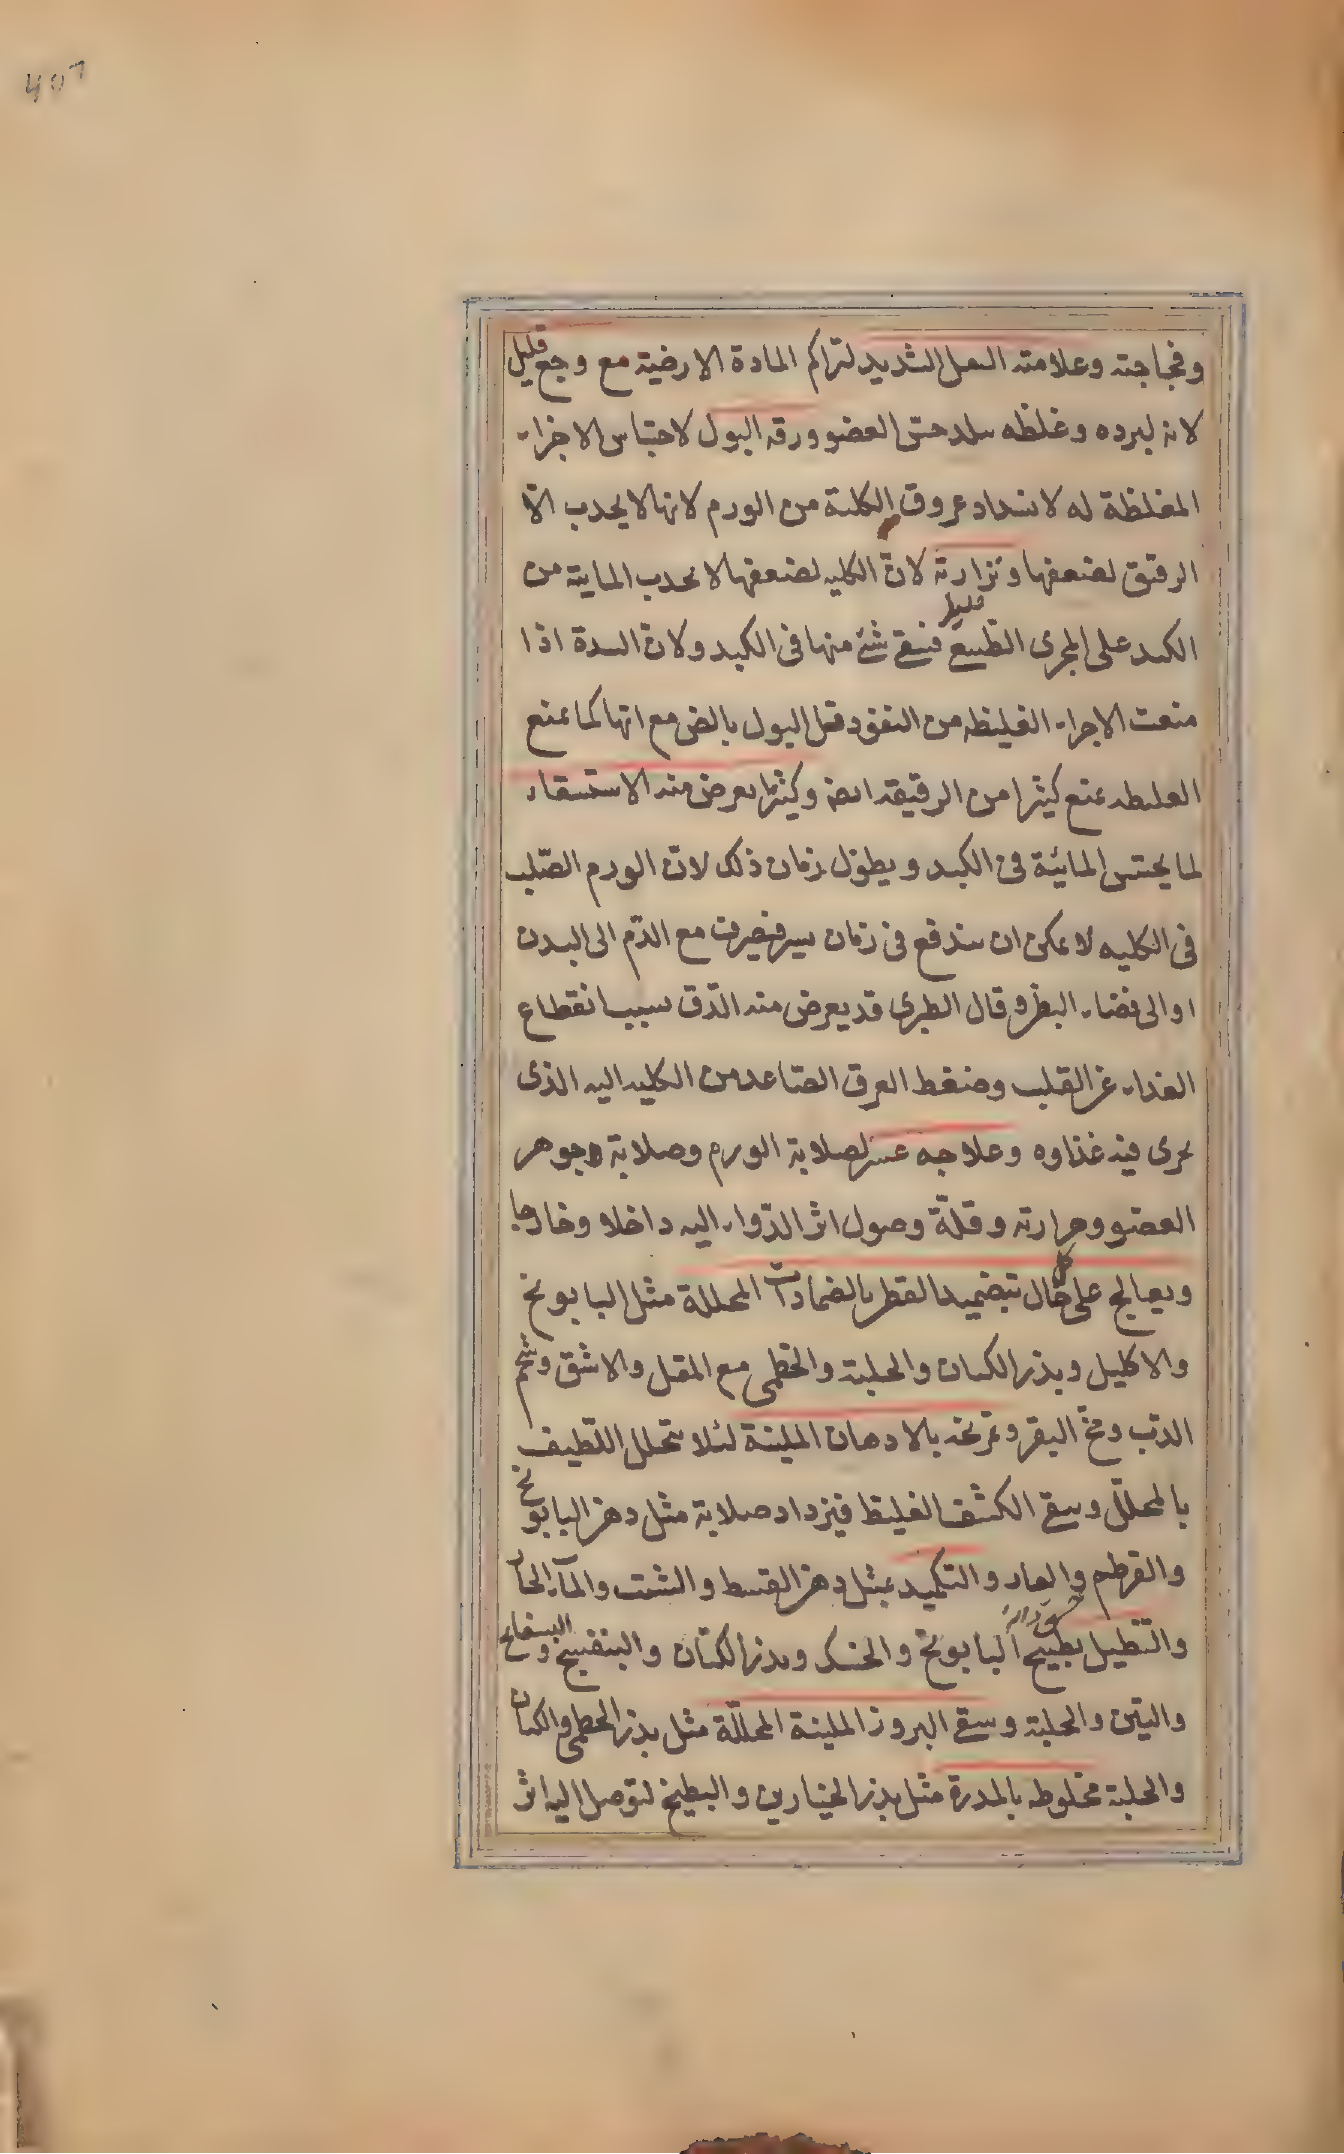 407
وفجاجته وعلامته الثقل الشديد لتراكم المادة الارضية مع وجع قليل
لانه لبرده وغلظه يبلد حسّ العضو ورقة البول لاحتباس الاجزاء
المغلظة له لانسداد عروق الكلية من الورم لانها لا يجذب الاّ
الرقيق لضعفها ونزارته لانّ الكليه لضعفها لا يجذب المايية من
الكبد على المجرى الطبيع فيبقى شئ منها فى الكبد ولانّ السدة اذا
منعت الاجزاء الغليظه من النفوذ قل البول بالض مع انها كما تمنع
الغليظه تمنع كثيرا من الرقيقه ايضا وكثيرا يعرض منه الاستسقاء
لما يحتبس المائيّة فى الكبد ويطول زمان ذلك لانّ الورم الصّلب
فى الكليه لا يمكن ان يندفع فى زمان يسير فيصرف مع الدّم الى البدن
او الى فضاء البطن وقال الطبرى قد يعرض منه الدّق بسبب انقطاع
الغذاء عن القلب وضغط العرق الصّاعد من الكليه اليه الذى
يجرى فيه غذاوه وعلاجه عسر لصلابة الورم وصلابة جوهر
العضو وحرارته وقلّة وصول اثر الدّواء اليه داخلا وخارجا
ويعالج على كل حال بتضميد القطن بالضمادات المحللة مثل البابونج
والاكليل وبذر الكتان والحلبة والخطمى مع المقل والاشق وشحم
الدّب ومخّ البقر وتمرخه بالادهان الملينة لئلا يتحلل اللّطيف
بالمحلّل ويبقى الكثيف الغليظ فيزداد صلابة مثل دهن البابونج
والقرطم والغار والتكميد بمثل دهن القسط والشبت والمآء الحار
والتّنطيل بطبيخ البابونج والحسك وبذر الكتّان والبنفسج والبسفايج
والتين والحلبة وسقى البروز الملينة المحللّة مثل بذر الخطمى والكتان
والحلبة مخلوطه بالمدرة مثل بذر الخيارين والبطيخ لتوصل اليه اثر